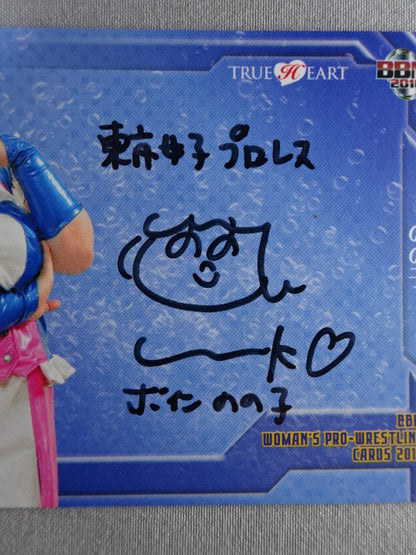 TRUE HEART
BBM
201
東京女子 プロレス
ボイン のの子
BBM
WOMAN'S PRO-WRESTLING
CARDS 201